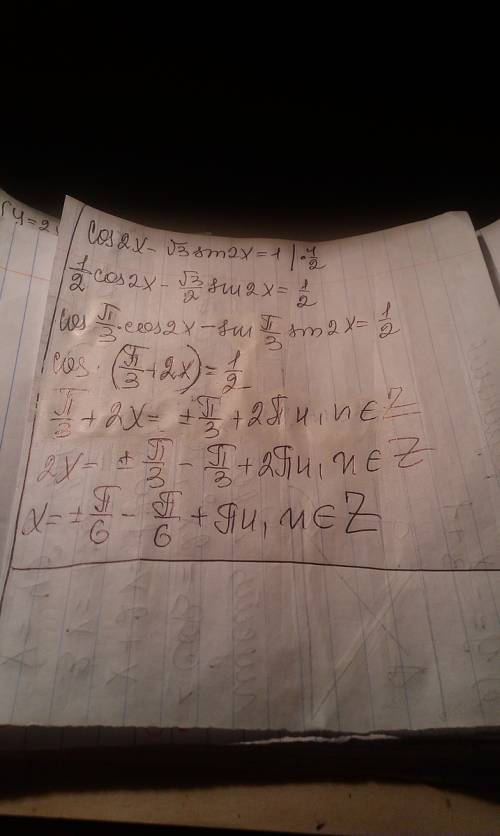 y=2
cos2x - √3 sin2x = 1 | · 1/2
1/2 cos2x - √3/2 sin2x = 1/2
cos π/3 · cos2x - sin π/3 sin2x = 1/2
cos · (π/3 + 2x) = 1/2
π/3 + 2x = ± π/3 + 2πn, n ∈ Z
2x = ± π/3 - π/3 + 2πn, n ∈ Z
x = ± π/6 - π/6 + πn, n ∈ Z